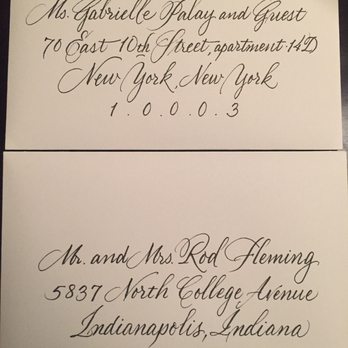 Ms. Gabrielle Palay and Guest
70 East 10th Street, apartment 14D
New York, New York
1.0.0.0.3
Mr. and Mrs. Rod Fleming
5837 North College Avenue
Indianapolis, Indiana